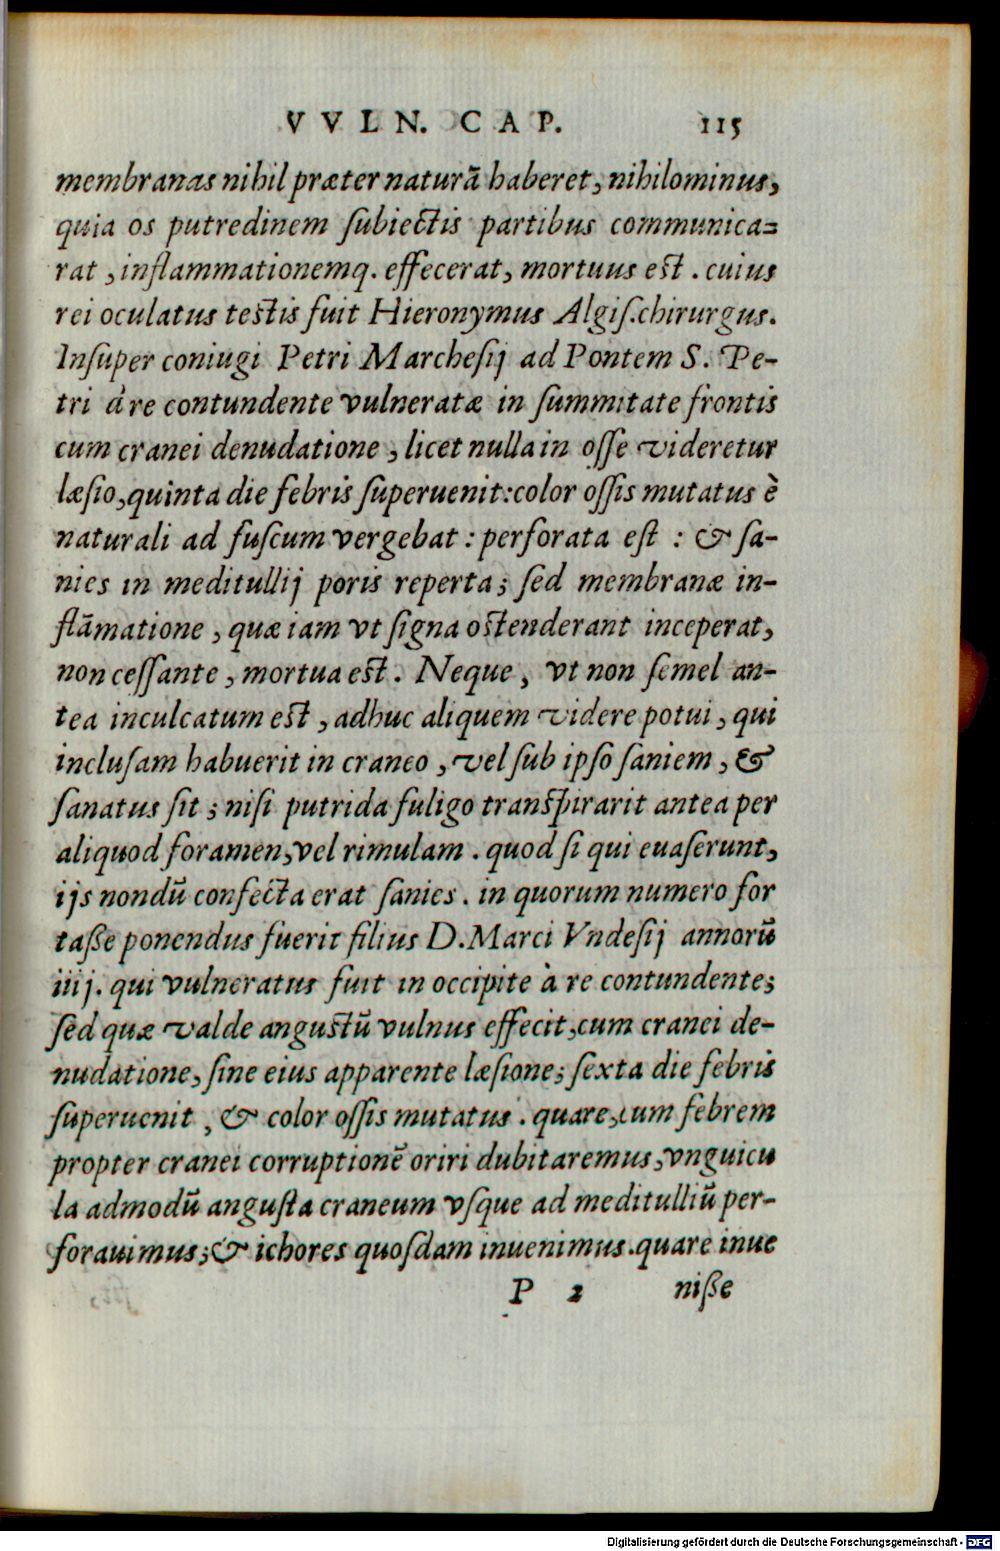 VVLN. CAP. 115
membranas nihil præter naturã haberet, nihilominus,
quia os putredinem ſubiectis partibus communica=
rat, inflammationemq. effecerat, mortuus est. cuius
rei oculatus testis fuit Hieronymus Algiſ.chirurgus.
Inſuper coniugi Petri Marcheſij ad Pontem S. Pe-
tri à re contundente vulneratæ in ſummitate frontis
cum cranei denudatione, licet nulla in oſſe videretur
læſio, quinta die febris ſuperuenit: color oſſis mutatus è
naturali ad fuſcum vergebat: perforata eſt: & ſa-
nies in meditullij poris reperta; ſed membranæ in-
flãmatione, quæ iam vt ſigna ostenderant inceperat,
non ceſſante, mortua est. Neque, vt non ſemel an-
tea inculcatum est, adhuc aliquem videre potui, qui
incluſam habuerit in craneo, vel ſub ipſo ſaniem, &
ſanatus ſit; niſi putrida fuligo tranſpirarit antea per
aliquod foramen, vel rimulam. quod ſi qui euaſerunt,
ijs nondũ confecta erat ſanies. in quorum numero for
taße ponendus fuerit filius D. Marci Vndeſij annorũ
iiij. qui vulneratus fuit in occipite à re contundente;
ſed quæ valde angustũ vulnus effecit, cum cranei de-
nudatione, ſine eius apparente læſione; ſexta die febris
ſuperuenit, & color oſſis mutatus. quare, cum febrem
propter cranei corruptionẽ oriri dubitaremus, vnguicu
la admodũ anguſta craneum vſque ad meditulliũ per-
forauimus; & ichores quoſdam inuenimus. quare inue
P 2 niße
Digitalisierung gefördert durch die Deutsche Forschungsgemeinschaft - DFG